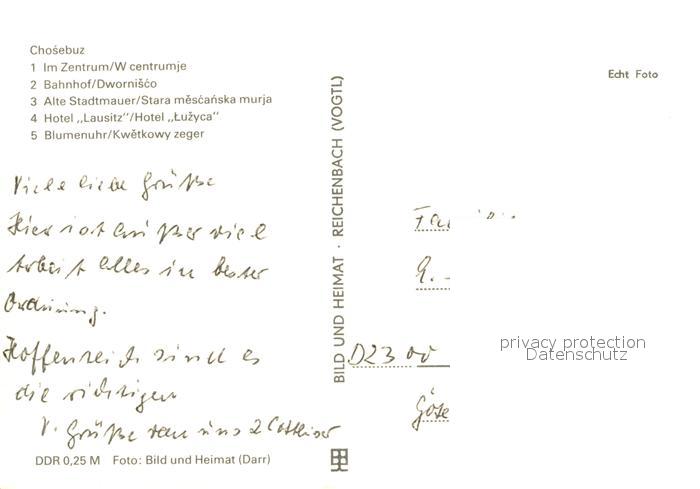 Chośebuz
1 Im Zentrum/W centrumje
2 Bahnhof/Dwornišćo
3 Alte Stadtmauer/Stara měsćańska murja
4 Hotel „Lausitz"/Hotel „Łužyca"
5 Blumenuhr/Kwětkowy zeger
Echt Foto
BILD UND HEIMAT · REICHENBACH (VOGTL)
Viele liebe Grüße
Hier ist außer viel
Arbeit alles in bester
Ordnung.
Hoffentlich sind es
die richtigen
V. Grüße von uns 2 Cottbuser
D23 00
privacy protection
Datenschutz
DDR 0,25 M Foto: Bild und Heimat (Darr)